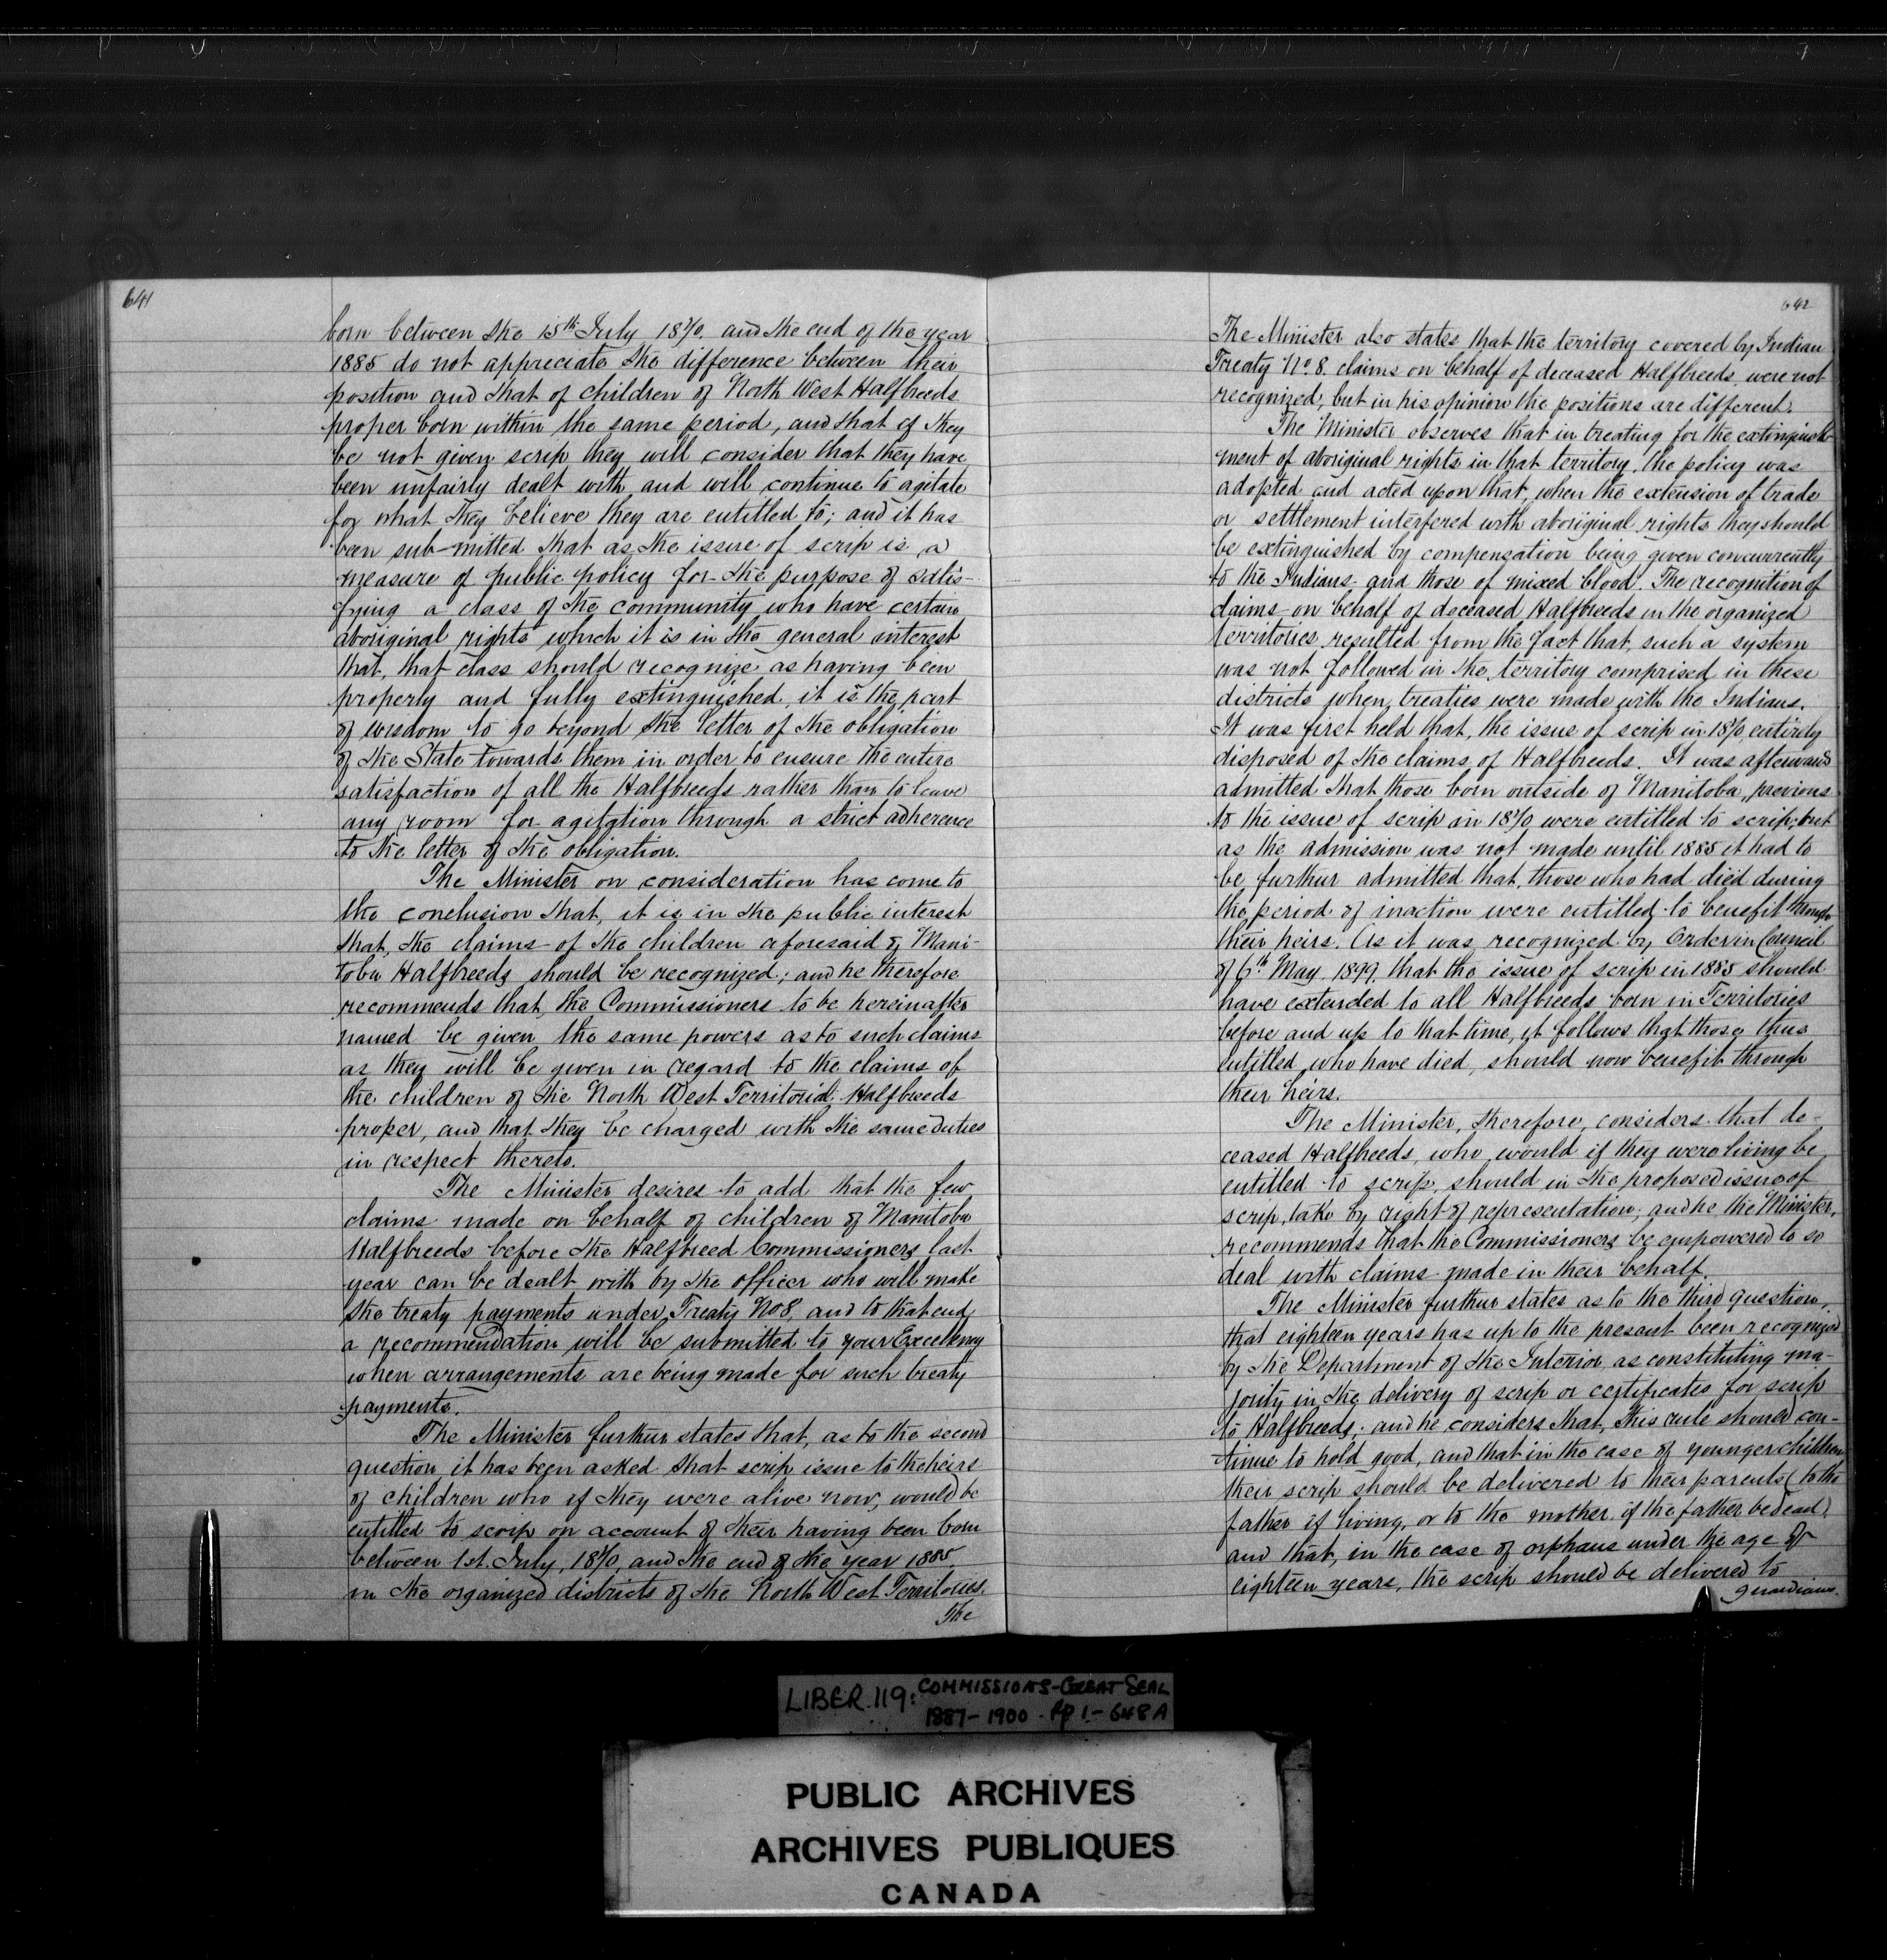 641
born between the 15th July 1870, and the end of the year
1885 do not appreciate the difference between their
position and that of children of North West Halfbreeds
proper born within the same period, and that if they
be not given scrip they will consider that they have
been unfairly dealt with and will continue to agitate
for what they believe they are entitled to; and it has
been sub-mitted that as the issue of scrip is a
measure of public policy for the purpose of satis-
fying a class of the community who have certain
aboriginal rights which it is in the general interest
that, that class should recognize as having been
properly and fully extinguished, it is the part
of wisdom to go beyond the letter of the obligation
of the State towards them in order to ensure the entire
satisfaction of all the Halfbreeds rather than to leave
any room for agitation through a strict adherence
to the letter of the obligation.
The Minister on consideration has come to
the conclusion that, it is in the public interest
that, the claims of the children aforesaid of Mani-
toba Halfbreeds should be recognized; and he therefore
recommends that, the Commissioners to be hereinafter
named be given the same powers as to such claims
as they will be given in regard to the claims of
the children of the North West Territorial Halfbreeds
proper, and that they be charged with the same duties
in respect thereto.
The Minister desires to add that the few
claims made on behalf of children of Manitoba
Halfbreeds before the Halfbreed Commissioners last
year can be dealt with by the officer who will make
the treaty payments under Treaty No 8, and to that end
a recommendation will be submitted to your Excellency
when arrangements are being made for such treaty
payments.
The Minister further states that, as to the second
question it has been asked that scrip issue to the heirs
of children who if they were alive now, would be
entitled to scrip on account of their having been born
between 1st. July, 1870, and the end of the year 1885,
in the organized districts of the North West Territories.
The
642
The Minister also states that the territory covered by Indian
Treaty No. 8. claims on behalf of deceased Halfbreeds were not
recognized, but in his opinion the positions are different.
The Minister observes that in treating for the extinguish-
ment of aboriginal rights in that territory, the policy was
adopted and acted upon that, when the extension of trade
or settlement interfered with aboriginal rights they should
be extinguished by compensation being given concurrently
to the Indians and those of mixed blood. The recognition of
claims on behalf of deceased Halfbreeds in the organized
territories resulted from the fact that, such a system
was not followed in the territory comprised in these
districts when treaties were made with the Indians.
It was first held that, the issue of scrip in 1870, entirely
disposed of the claims of Halfbreeds. It was afterwards
admitted that those born outside of Manitoba, previous
to the issue of scrip in 1870 were entitled to scrip; but
as the admission was not made until 1885 it had to
be further admitted that, those who had died during
the period of inaction were entitled to benefit through
their heirs. As it was recognized by Order in Council
of 6th May 1899, that the issue of scrip in 1885 should
have extended to all Halfbreeds born in Territories
before and up to that time, it follows that those thus
entitled who have died, should now benefit through
their heirs.
The Minister, therefore, considers that de-
ceased Halfbreeds, who would if they were living be
entitled to scrip, should in the proposed issue of
scrip, take by right of representation; and he, the Minister,
recommends that the Commissioners be empowered to so
deal with claims made in their behalf.
The Minister further states as to the third question,
that eighteen years has up to the present been recognized
by the Department of the Interior as constituting ma-
jority in the delivery of scrip or certificates for scrip
to Halfbreeds; and he considers that, this rule should con-
tinue to hold good, and that in the case of younger children
their scrip should be delivered to their parents (to the
father if living, or to the mother if the father be dead),
and that, in the case of orphans under the age of
eighteen years, the scrip should be delivered to
guardians.
LIBER 119: COMMISSIONS-GREAT SEAL
1887-1900 - Pp 1-648A
PUBLIC ARCHIVES
ARCHIVES PUBLIQUES
CANADA